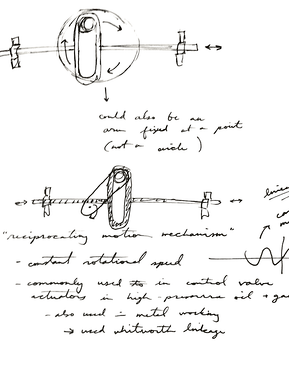 could also be an
arm fixed at a point
(not a circle)
"reciprocating motion mechanism"
- constant rotational speed
- commonly used in control valve
actuators in high-pressure oil + gas
- also used in metal working
→ used whitworth linkage